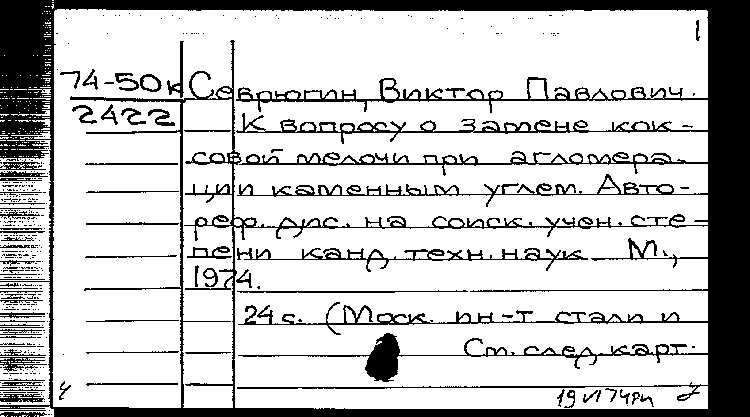 1
74-50к Севрюгин, Виктор Павлович.
2422 К вопросу о замене кок-
совой мелочи при агломера-
ции каменным углем. Авто-
реф. дис. на соиск. учен. сте-
пени канд. техн. наук. М.,
1974.
24 с. (Моск. ин-т стали и
См. след. карт.